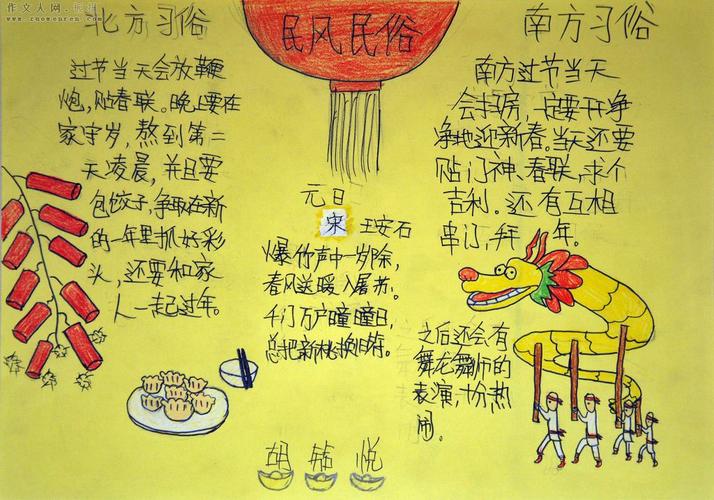 作文人网
www.zuowenren.com
北方习俗
过节当天会放鞭
炮,贴春联。晚上要在
家守岁,熬到第二
天凌晨,并且要
包饺子,争取在新
的一年里抓好彩
头,还要和家
人一起过年。
民风民俗
元日
宋 王安石
爆竹声中一岁除,
春风送暖入屠苏。
千门万户瞳瞳日,
总把新桃换旧符。
南方习俗
南方过节当天
会扫房,一定要干净
净地迎新春。当天还要
贴门神、春联,求个
吉利。还有互相
串门,拜年。
之后还会有
舞龙舞师的
表演,十分热
闹。
胡 悦